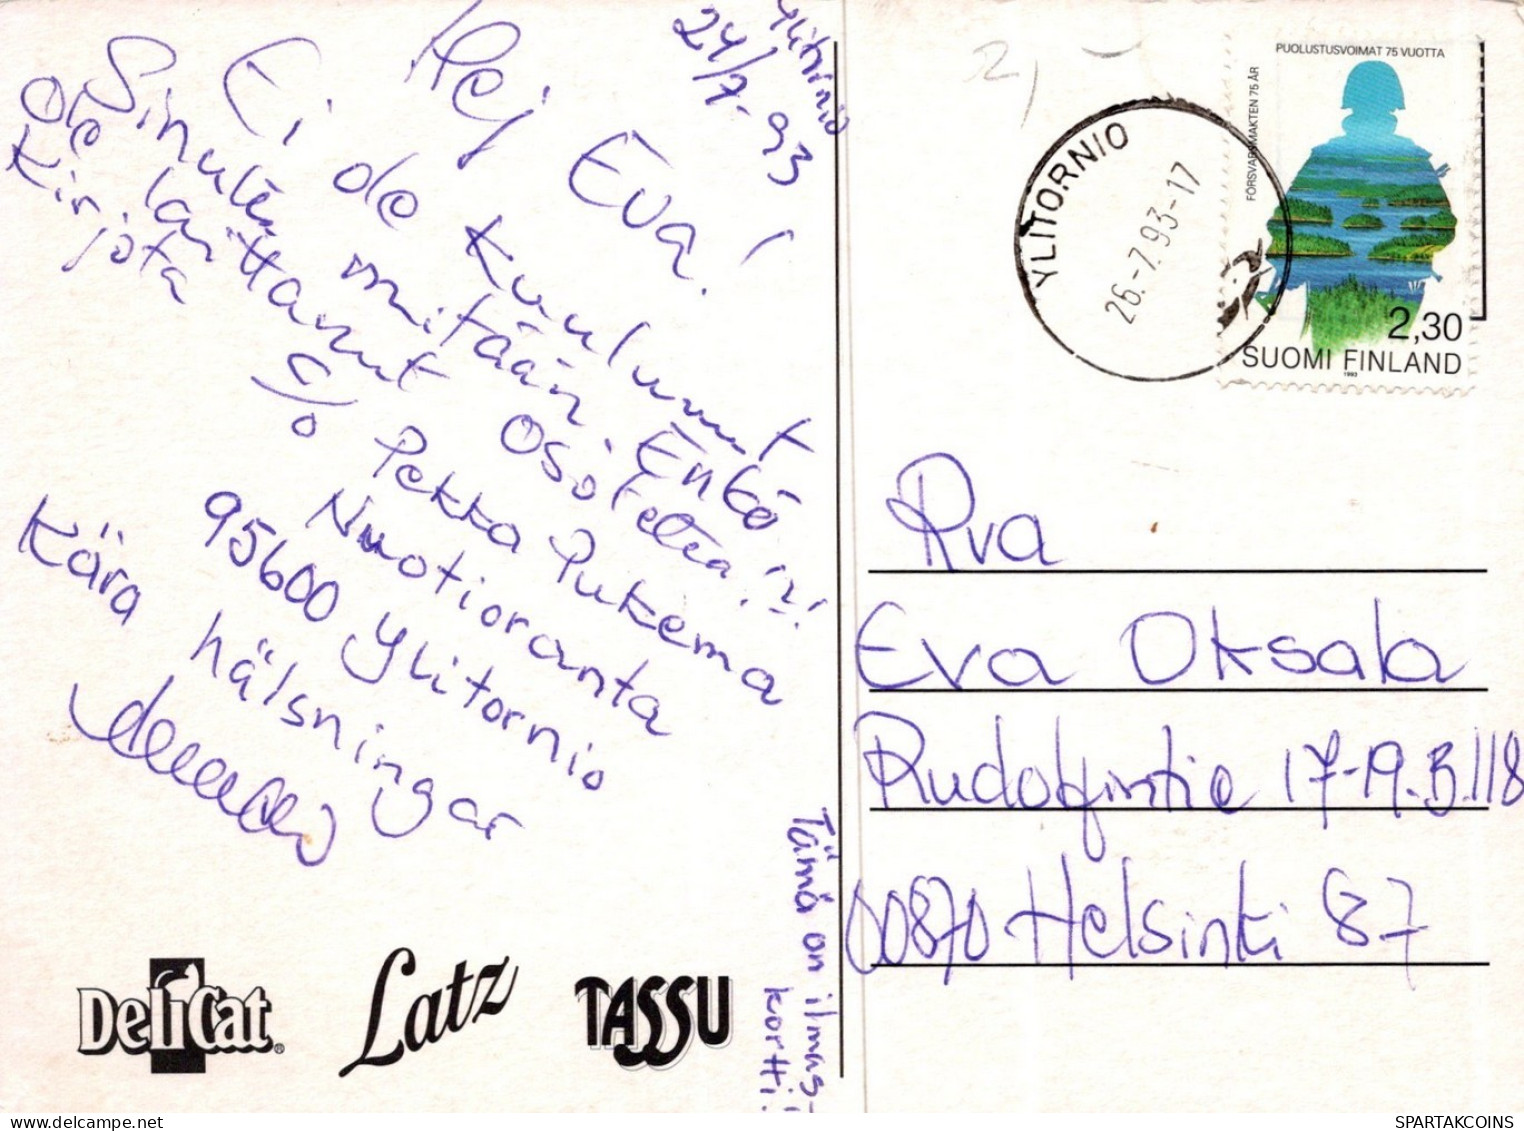 Ylitornio
24/7-93
Hej Eva!
Ei ole kuulunut
Sinulta mitään. Enkö
ole laittanut osoitetta!?!
Kirjota
c/o Pekka Pukema
Nuotioranta
95600 Ylitornio
Kära hälsningar
Tämä on ilmas-
kortti!
DeliCat
Latz
TASSU
PUOLUSTUSVOIMAT 75 VUOTTA
FÖRSVARSMAKTEN 75 ÅR
2,30
SUOMI FINLAND
1993
YLITORNIO
26.-7.93-17
2,-
Rva
Eva Oksala
Rudolfintie 17-19.B.118
00870 Helsinki 87
SPARTAKCOINS